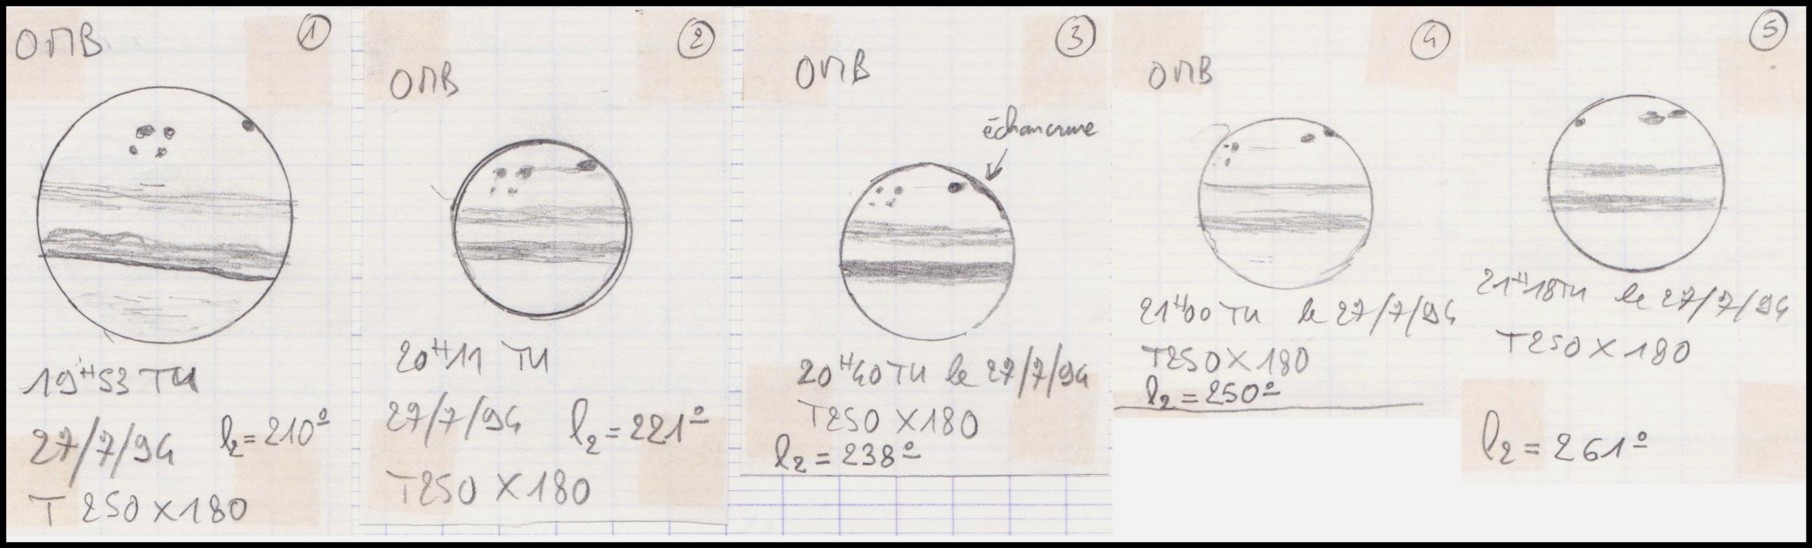 ОПВ
1
19H53 TU
27/7/94
l2=210º
T250×180
ОПВ
2
20H11 TU
27/7/94
l2=221º
T250×180
ОПВ
3
échancrure
20H40 TU le 27/7/94
T250×180
l2=238º
ОПВ
4
21H00 TU le 27/7/94
T250×180
l2=250º
5
21H18TU le 27/7/94
T250×180
l2=261º